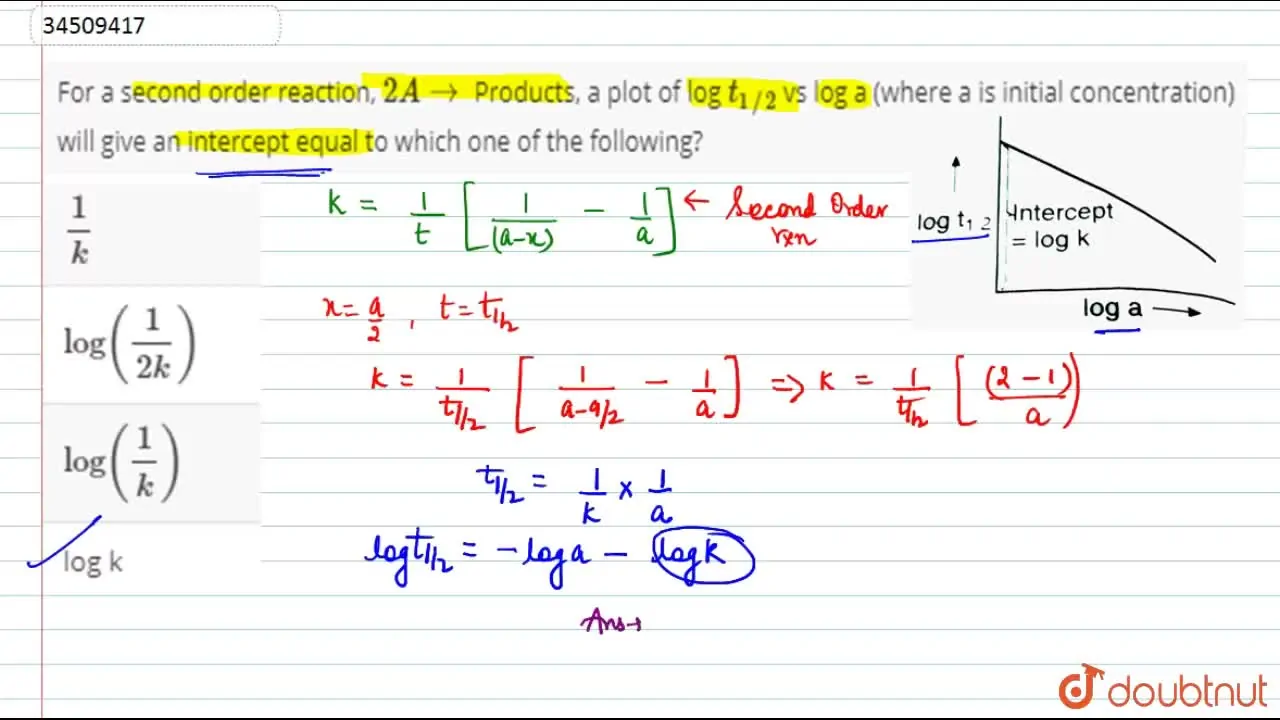 34509417
For a second order reaction, 2A → Products, a plot of log t₁/₂ vs log a (where a is initial concentration)
will give an intercept equal to which one of the following?
1/k
log(1/2k)
log(1/k)
log k
k = 1/t [1/(a-x) - 1/a] ← Second Order
rxn
x = a/2 , t = t1/2
k = 1/t1/2 [1/a-a/2 - 1/a] => k = 1/t1/2 [(2-1)/a]
t1/2 = 1/k × 1/a
log t1/2 = - log a - log k
Ans→
log t₁ ₂
Intercept
= log k
log a →
doubtnut